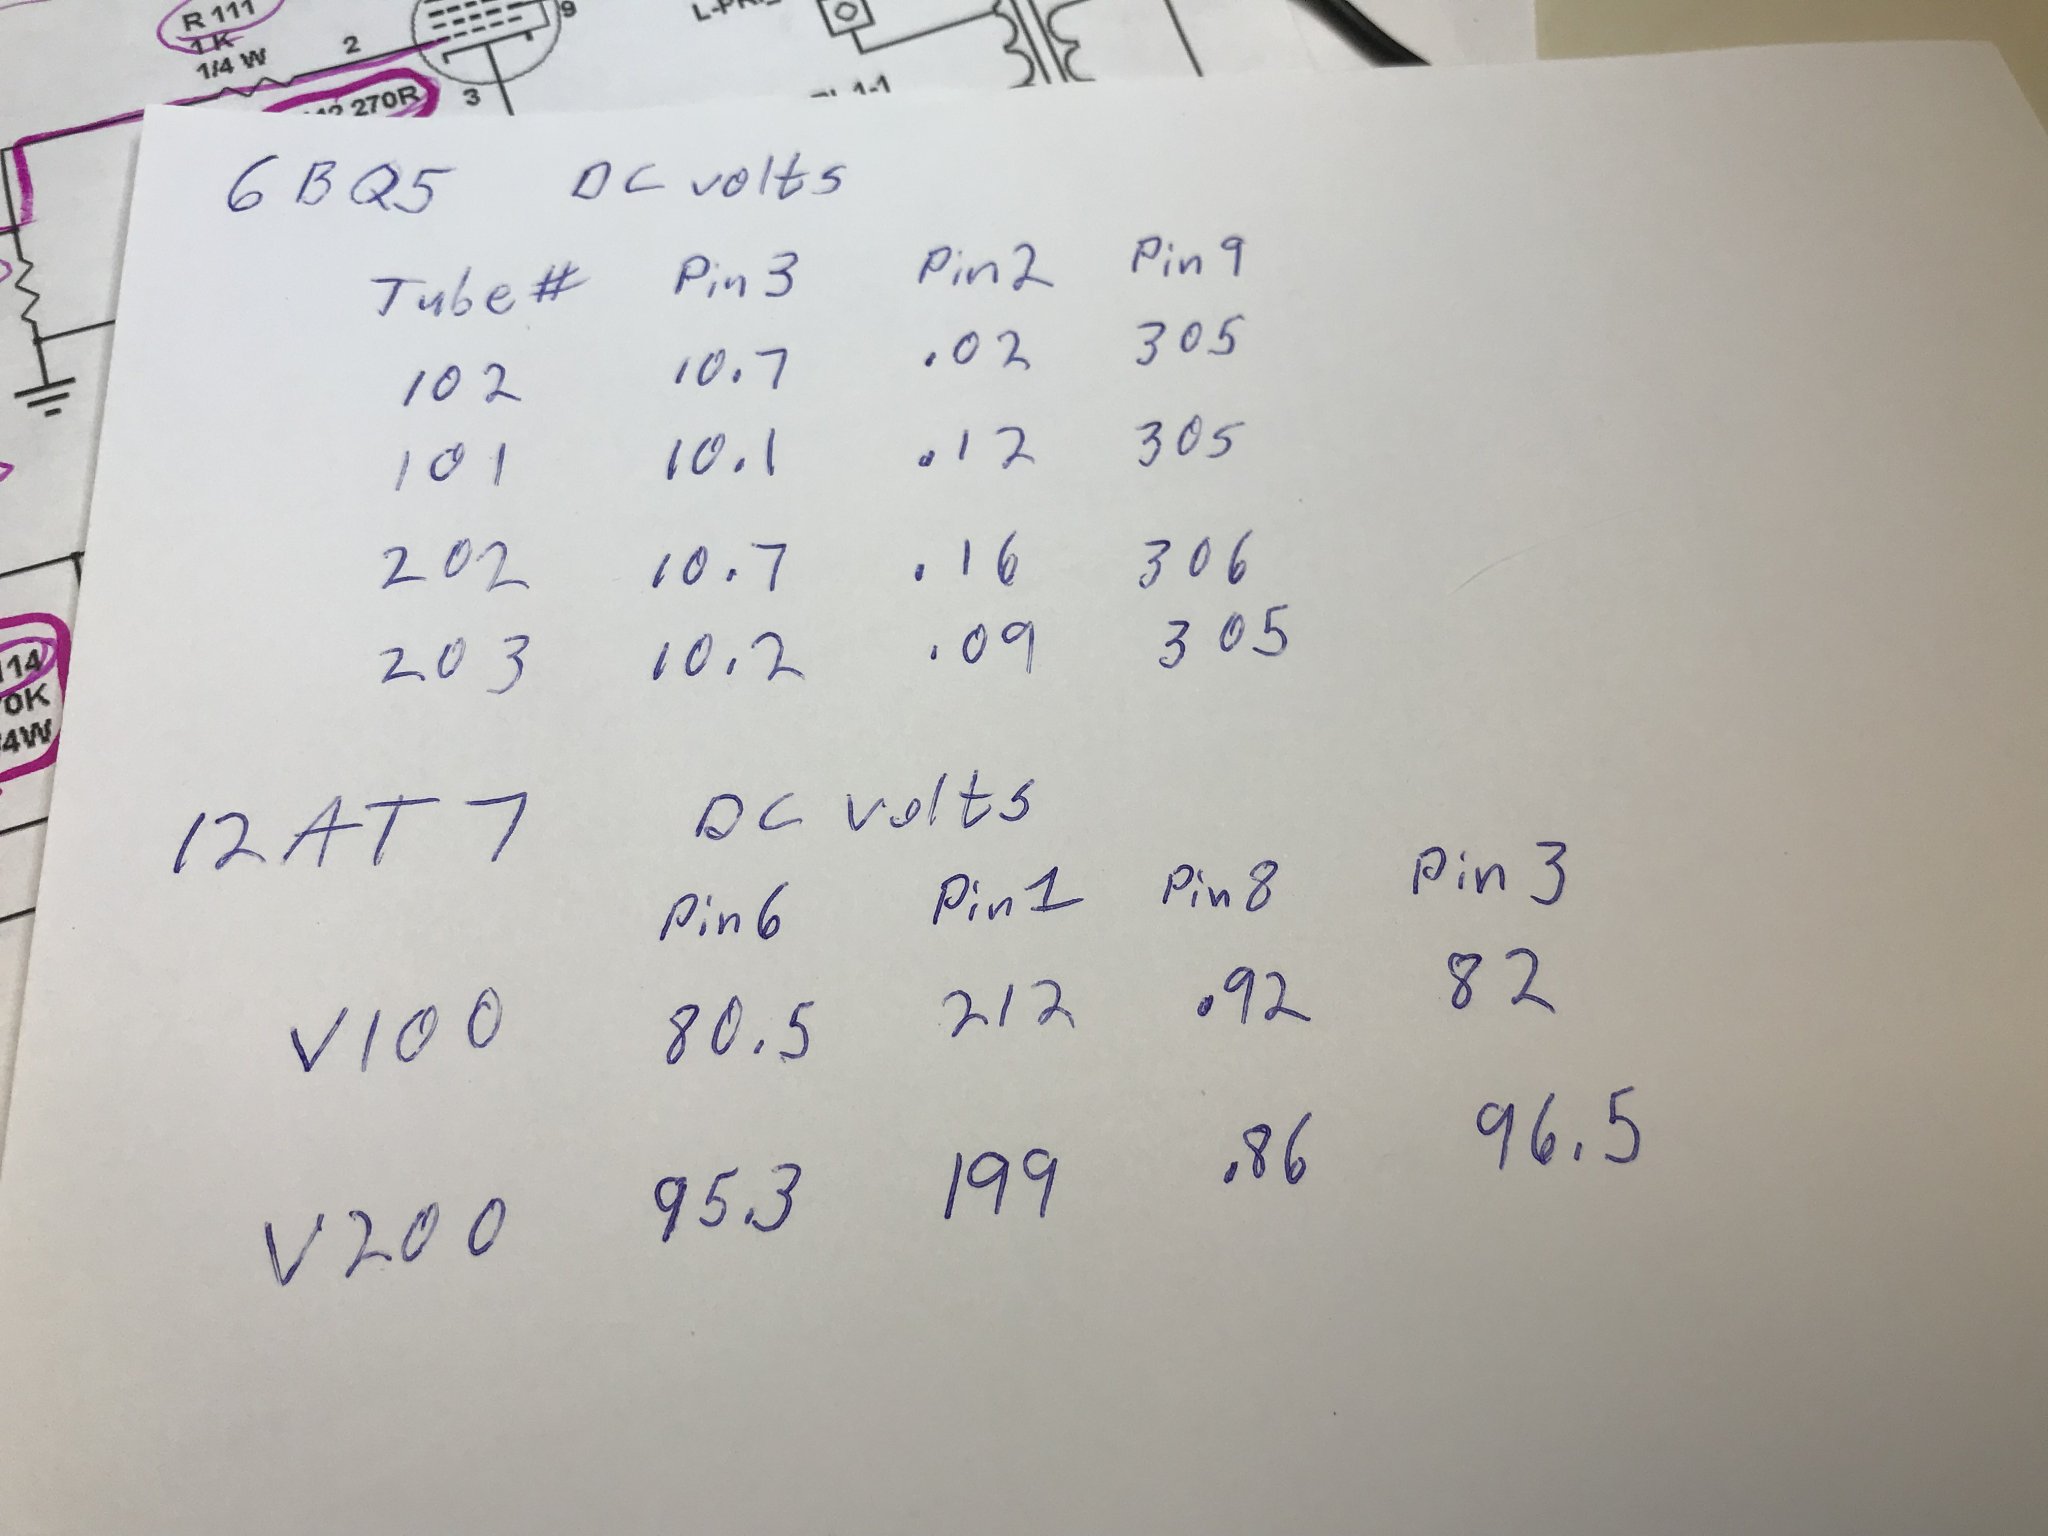 R 111
1 K
1/4 W
2
9
3
270R
6BQ5 DC volts
Tube# Pin 3 Pin 2 Pin 9
102 10.7 .02 305
101 10.1 .12 305
202 10.7 .16 306
203 10.2 .09 305
114
0K
4W
12AT7 DC volts
Pin 6 Pin 1 Pin 8 Pin 3
V100 80.5 212 .92 82
V200 95.3 199 .86 96.5